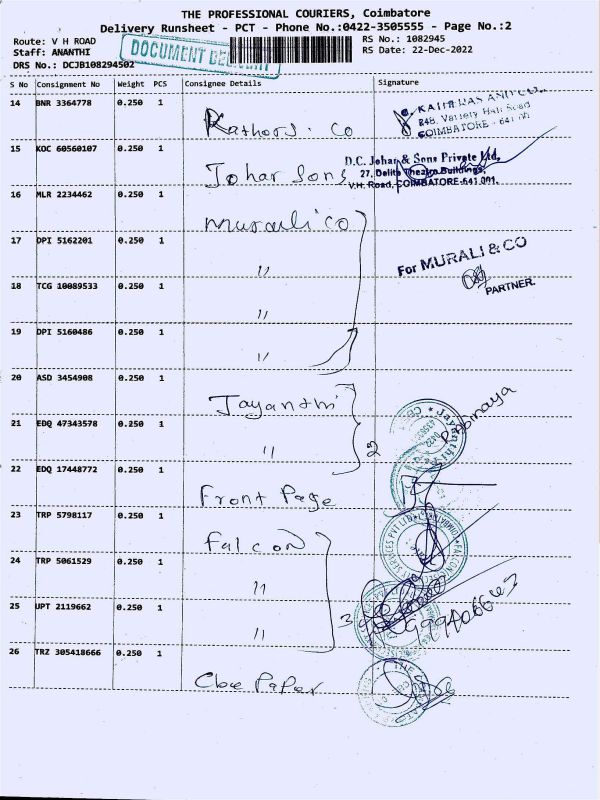 THE PROFESSIONAL COURIERS, Coimbatore
Delivery Runsheet - PCT - Phone No.:0422-3505555 - Page No.:2
Route: V H ROAD
RS No.: 1082945
Staff: ANANTHI
DOCUMENT DELIVERY
RS Date: 22-Dec-2022
DRS No.: DCJB108294502
S No Consignment No Weight PCS Consignee Details Signature
14 BNR 3364778 0.250 1 Rathors. Co
848, Variety Hall Road
COIMBATORE - 641 001
15 KOC 60560107 0.250 1 Johar Sons
D.C. Johar & Sons Private Ltd,
27, Delite Theatre Buildings,
V.H. Road, COIMBATORE-641 001.
16 MLR 2234462 0.250 1 Murali co
17 DPI 5162201 0.250 1 "
For MURALI & CO
PARTNER.
18 TCG 10089533 0.250 1 "
19 DPI 5160486 0.250 1 "
20 ASD 3454908 0.250 1 Jayanthi
21 EDQ 47343578 0.250 1 " 2
22 EDQ 17448772 0.250 1 Front Page
23 TRP 5798117 0.250 1 Falcon
24 TRP 5061529 0.250 1 "
25 UPT 2119662 0.250 1 " 3
26 TRZ 305418666 0.250 1